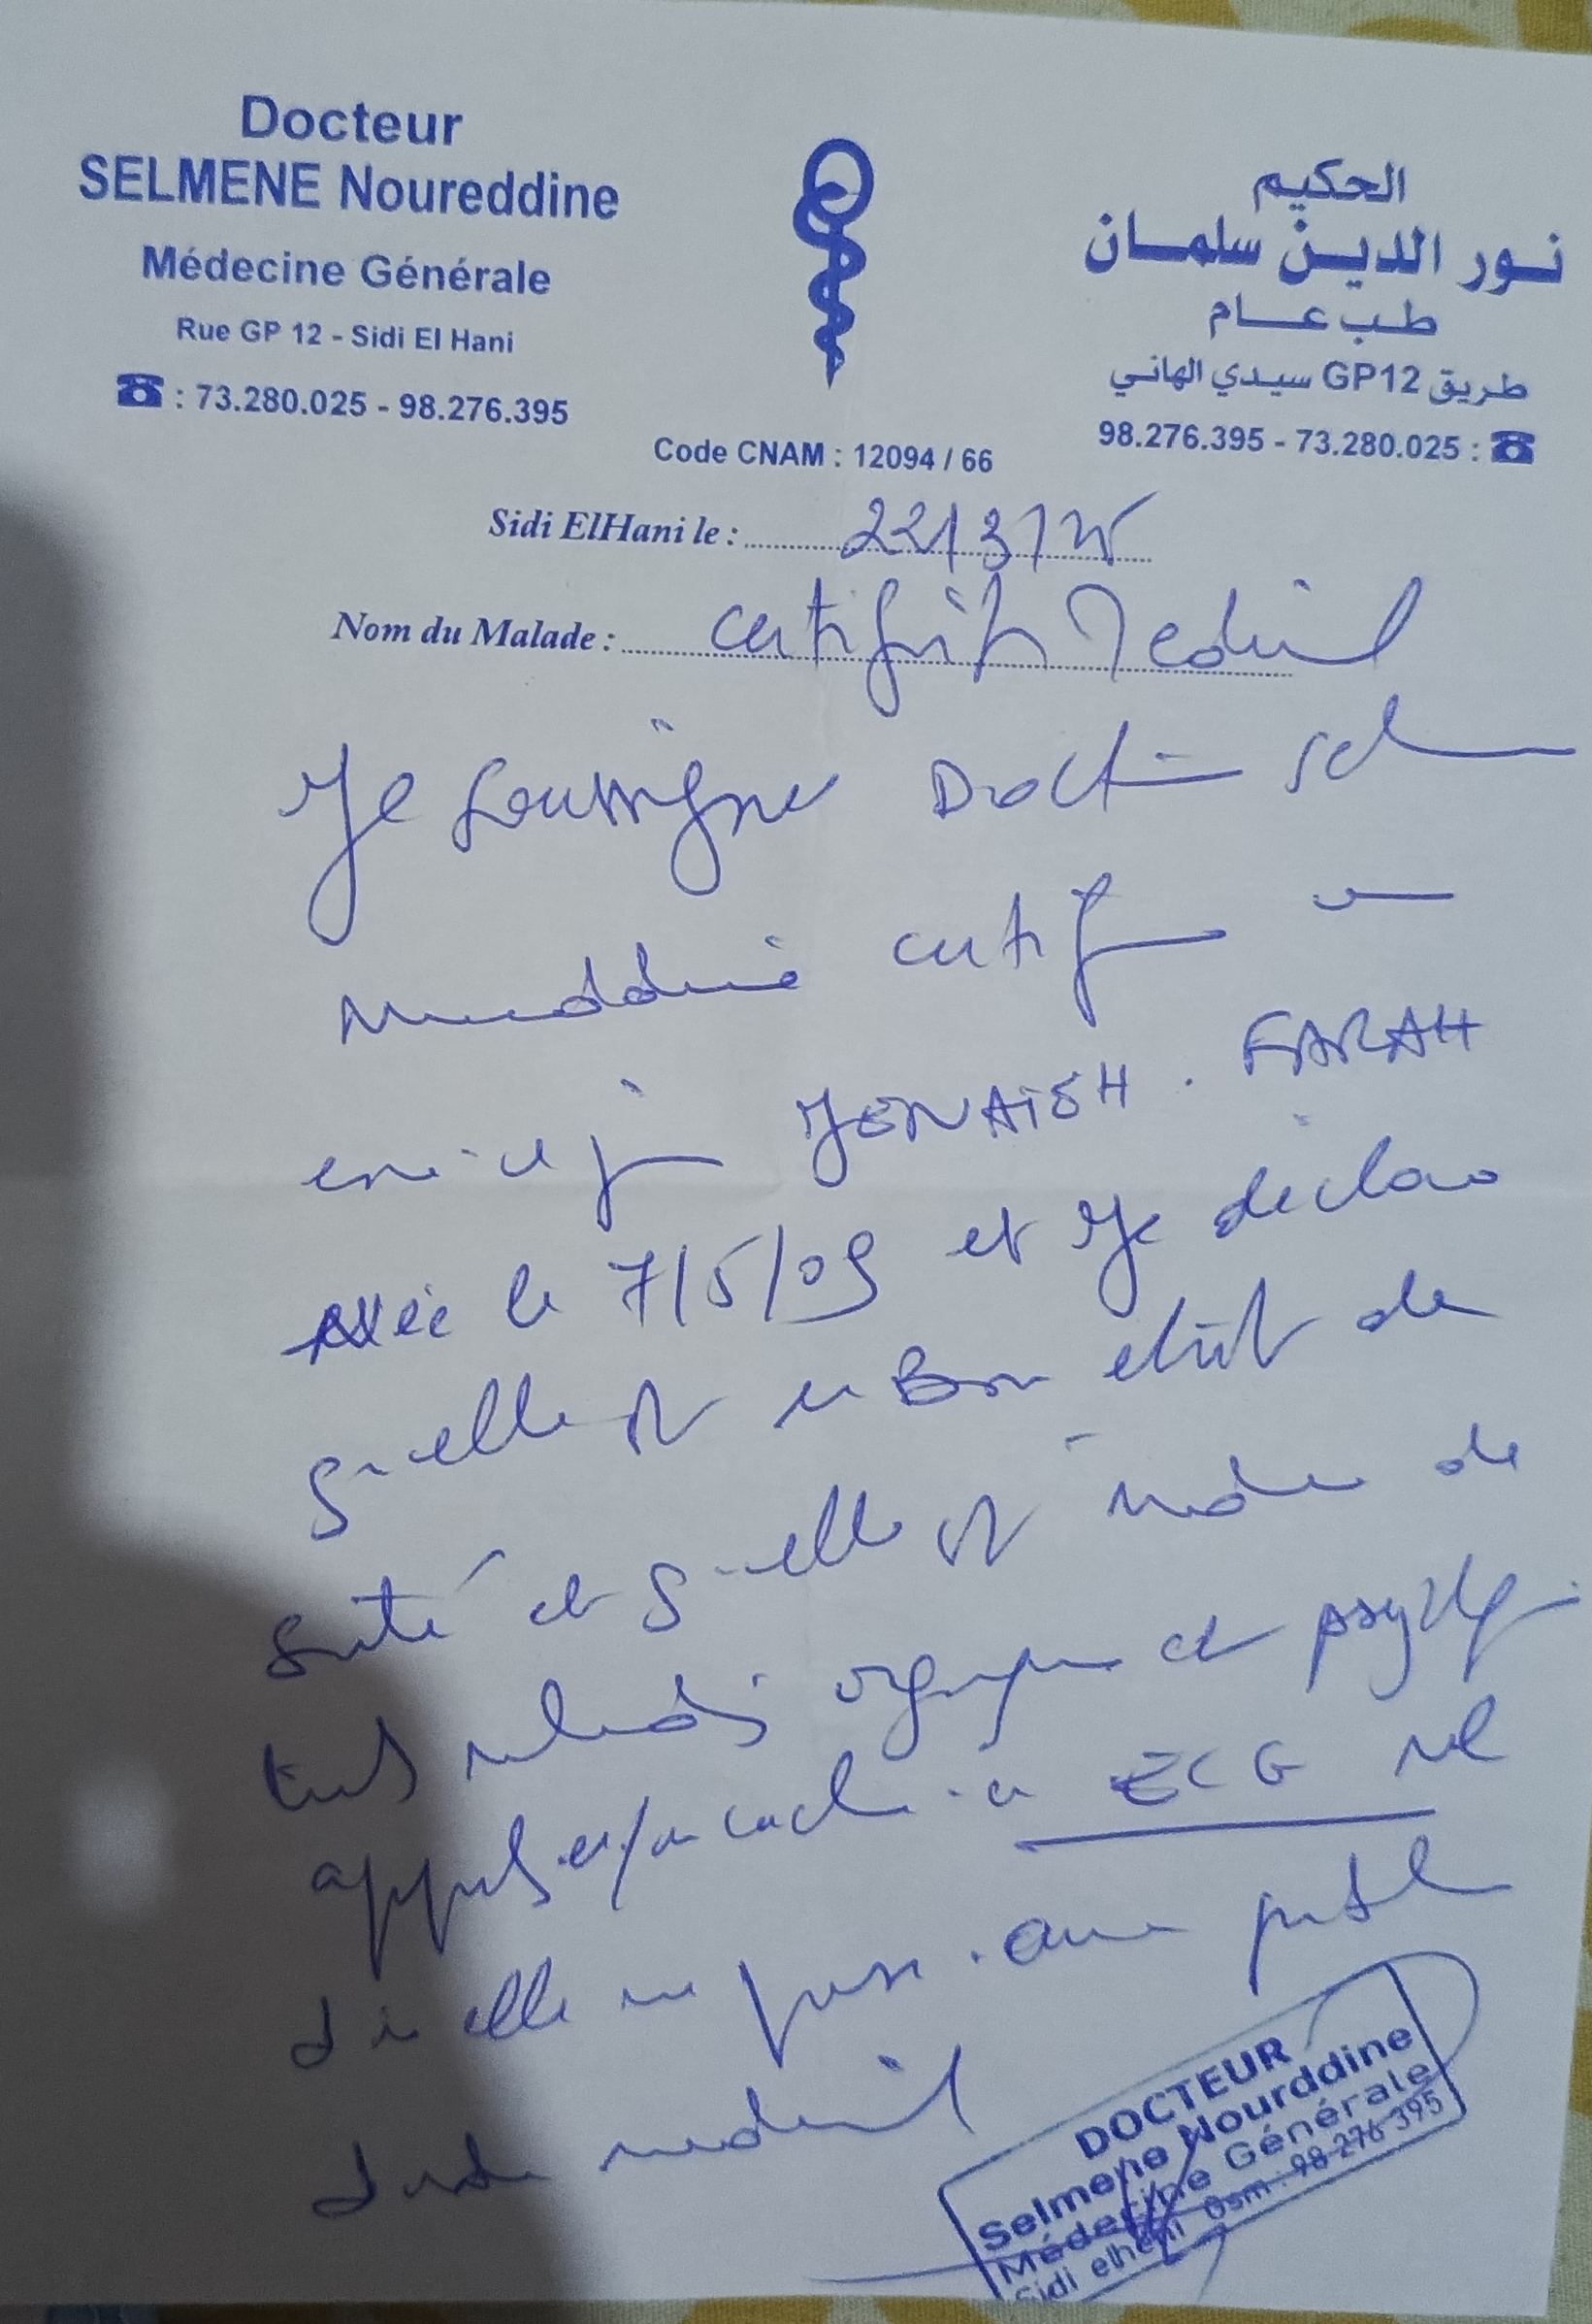 Docteur
SELMENE Noureddine
Médecine Générale
Rue GP 12 - Sidi El Hani
☎ : 73.280.025 - 98.276.395
الحكيم
نور الدين سلمان
طب عام
طريق GP12 سيدي الهاني
98.276.395 - 73.280.025 : ☎
Code CNAM : 12094 / 66
Sidi ElHani le : 22/3/25
Nom du Malade : certificat Medical
Je soussigné Docteur Selmene
Noureddine certifie avoir
examiné ce jour JENAIEH . FARAH
née le 7/5/09 et Je déclare
qu'elle est en Bon état de
santé et qu'elle est indemne de
toutes maladies organiques et psychiques
appareil cardiaque ECG nl
elle ne pose aucun problème
d'ordre médical
DOCTEUR
Selmene Nourddine
Médecine Générale
Sidi elheni Gsm : 98 276 395